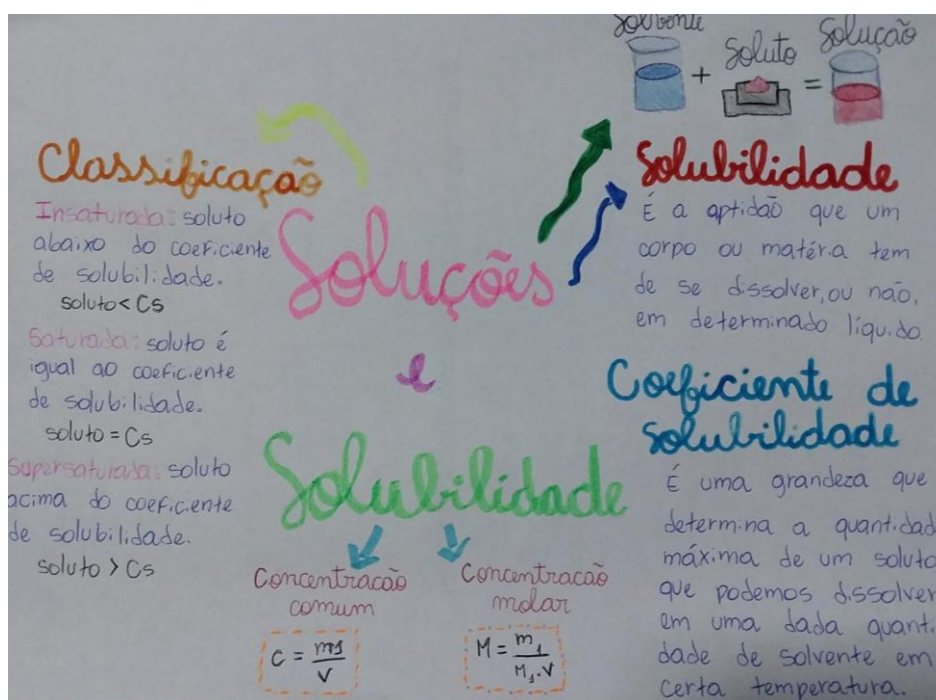 Solvente
+
Soluto
=
Solução
Classificação
Insaturada: soluto
abaixo do coeficiente
de solubilidade.
soluto < Cs
Saturada: soluto é
igual ao coeficiente
de solubilidade.
soluto = Cs
Supersaturada: soluto
acima do coeficiente
de solubilidade.
soluto > Cs
Soluções
e
Solubilidade
Concentracão
comum
C = m1
V
Concentracão
molar
M = m1
M1.V
Solubilidade
É a aptidão que um
corpo ou matéria tem
de se dissolver, ou não,
em determinado líquido.
Coeficiente de
solubilidade
É uma grandeza que
determina a quantidad
máxima de um soluto
que podemos dissolver
em uma dada quanti
dade de solvente em
certa temperatura.